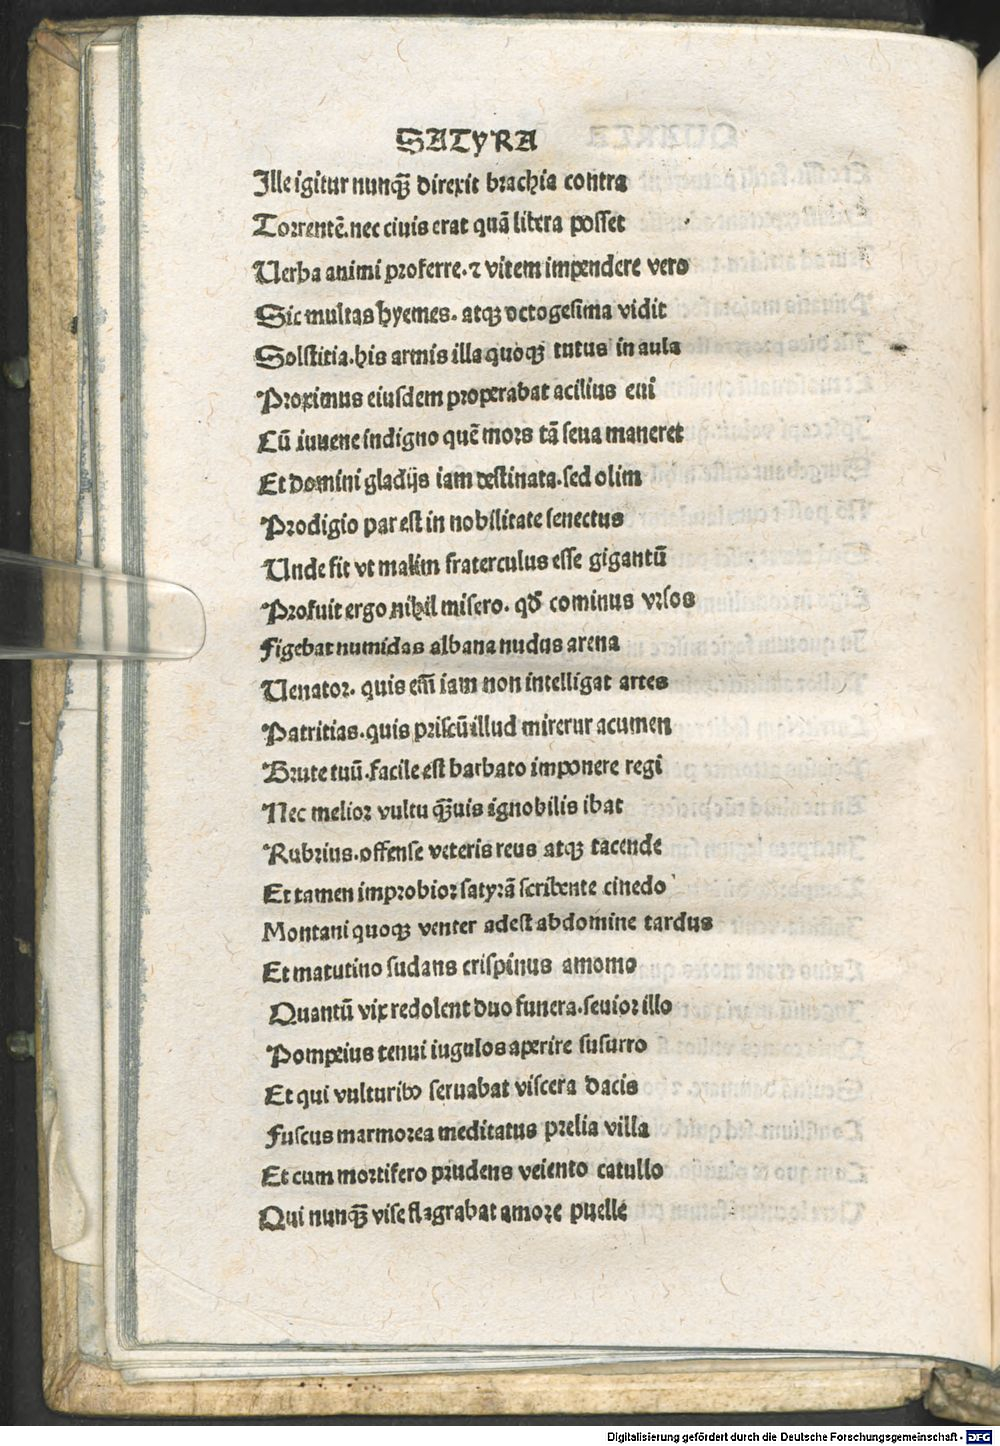 SATyRA
Ille igitur nunꝗ̃ direxit brachia contra
Torrentē. nec ciuis erat quã litera posset
Uerba animi proferre. ⁊ vitem impendere vero
Sic multas hyemes. atqꝫ octogesima vidit
Solstitia. his armis illa quoqꝫ tutus in aula
Proximus eiusdem properabat acilius eui
Cū iuuene indigno quē mors tā seua maneret
Et domini gladijs iam destinata. sed olim
Prodigio par est in nobilitate senectus
Unde fit vt malim fraterculus esse gigantū
Profuit ergo nihil misero. qď cominus vrsos
Figebat numidas albana nudus arena
Uenator. quis em̄ iam non intelligat artes
Patritias. quis priscū illud miretur acumen
Brute tuū. facile est barbato imponere regi
Nec melior vultu ꝗ̃uis ignobilis ibat
Rubrius. offense veteris reus atqꝫ tacende
Et tamen improbior satyrã scribente cinedo
Montani quoqꝫ venter adest abdomine tardus
Et matutino sudans crispinus amomo
Quantū vix redolent duo funera. seuior illo
Pompeius tenui iugulos aperire susurro
Et qui vulturibꝰ seruabat viscera dacis
Fuscus marmorea meditatus prelia villa
Et cum mortifero prudens veiento catullo
Qui nunꝗ̃ vise flagrabat amore puelle
Digitalisierung gefördert durch die Deutsche Forschungsgemeinschaft - DFG